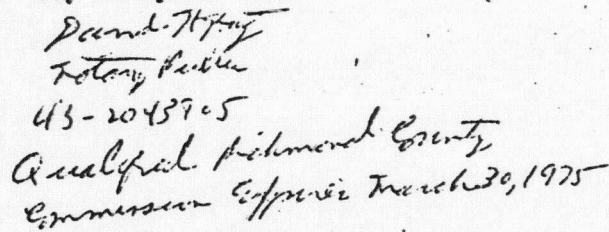 Notary Public
43-2043905
Qualified Richmond County
Commission Expires March 30, 1975